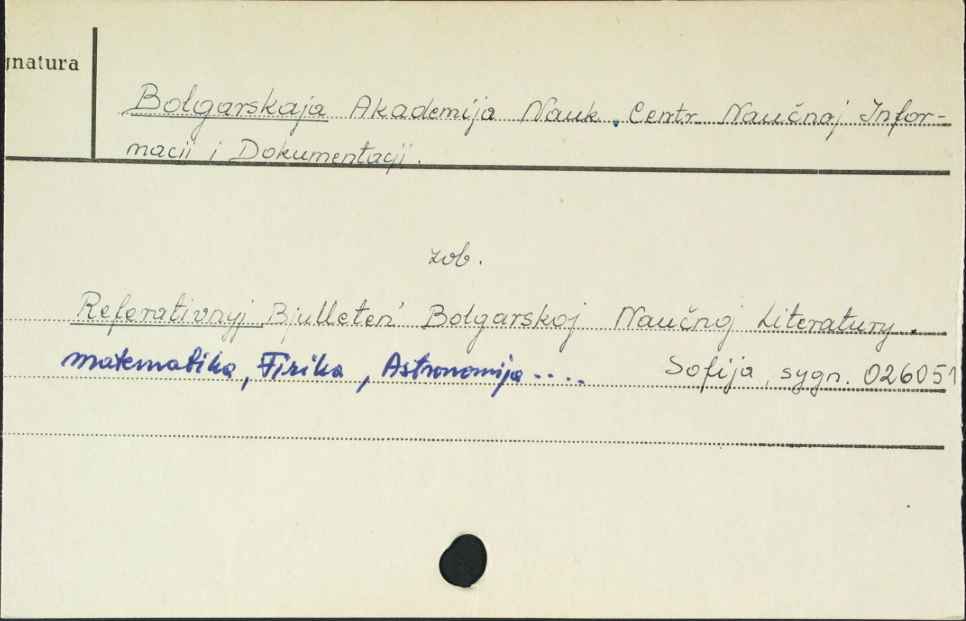 gnatura
Bolgarskaja Akademija Nauk. Centr Naučnoj Infor-
macii i Dokumentacji.
zob.
Referativnyj Bjulleteń Bolgarskoj Naučnoj Literatury.
Matematika, Fizika, Astronomija.... Sofija, sygn. 026051